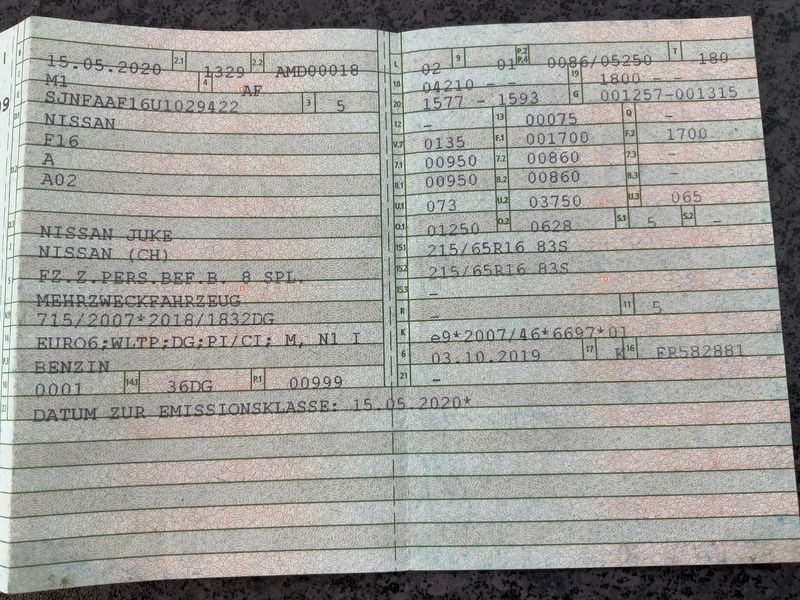 15.05.2020 2.1 1329 2.2 AMD00018
M1 4 AF
SJNFAAF16U1029422 3 5
NISSAN
F16
A
A02
NISSAN JUKE
NISSAN (CH)
FZ.Z.PERS.BEF.B. 8 SPL.
MEHRZWECKFAHRZEUG
715/2007*2018/1832DG
EURO6;WLTP;DG;PI/CI; M, N1 I
BENZIN
0001 14.1 36DG P.1 00999
DATUM ZUR EMISSIONSKLASSE: 15.05.2020*
L 02 9 01 P.2 P.4 0086/05250 T 180
18 04210 - - 19 1800 - -
20 1577 - 1593 G 001257-001315
12 - 13 00075 Q -
V.7 0135 F.1 001700 F.2 1700
7.1 00950 7.2 00860 7.3 -
8.1 00950 8.2 00860 8.3 -
U.1 073 U.2 03750 U.3 065
O.1 01250 O.2 0628 S.1 5 S.2 -
15.1 215/65R16 83S
15.2 215/65R16 83S
15.3 -
R - 11 5
K e9*2007/46*6697*01
6 03.10.2019 17 K 16 FR582881
21 -